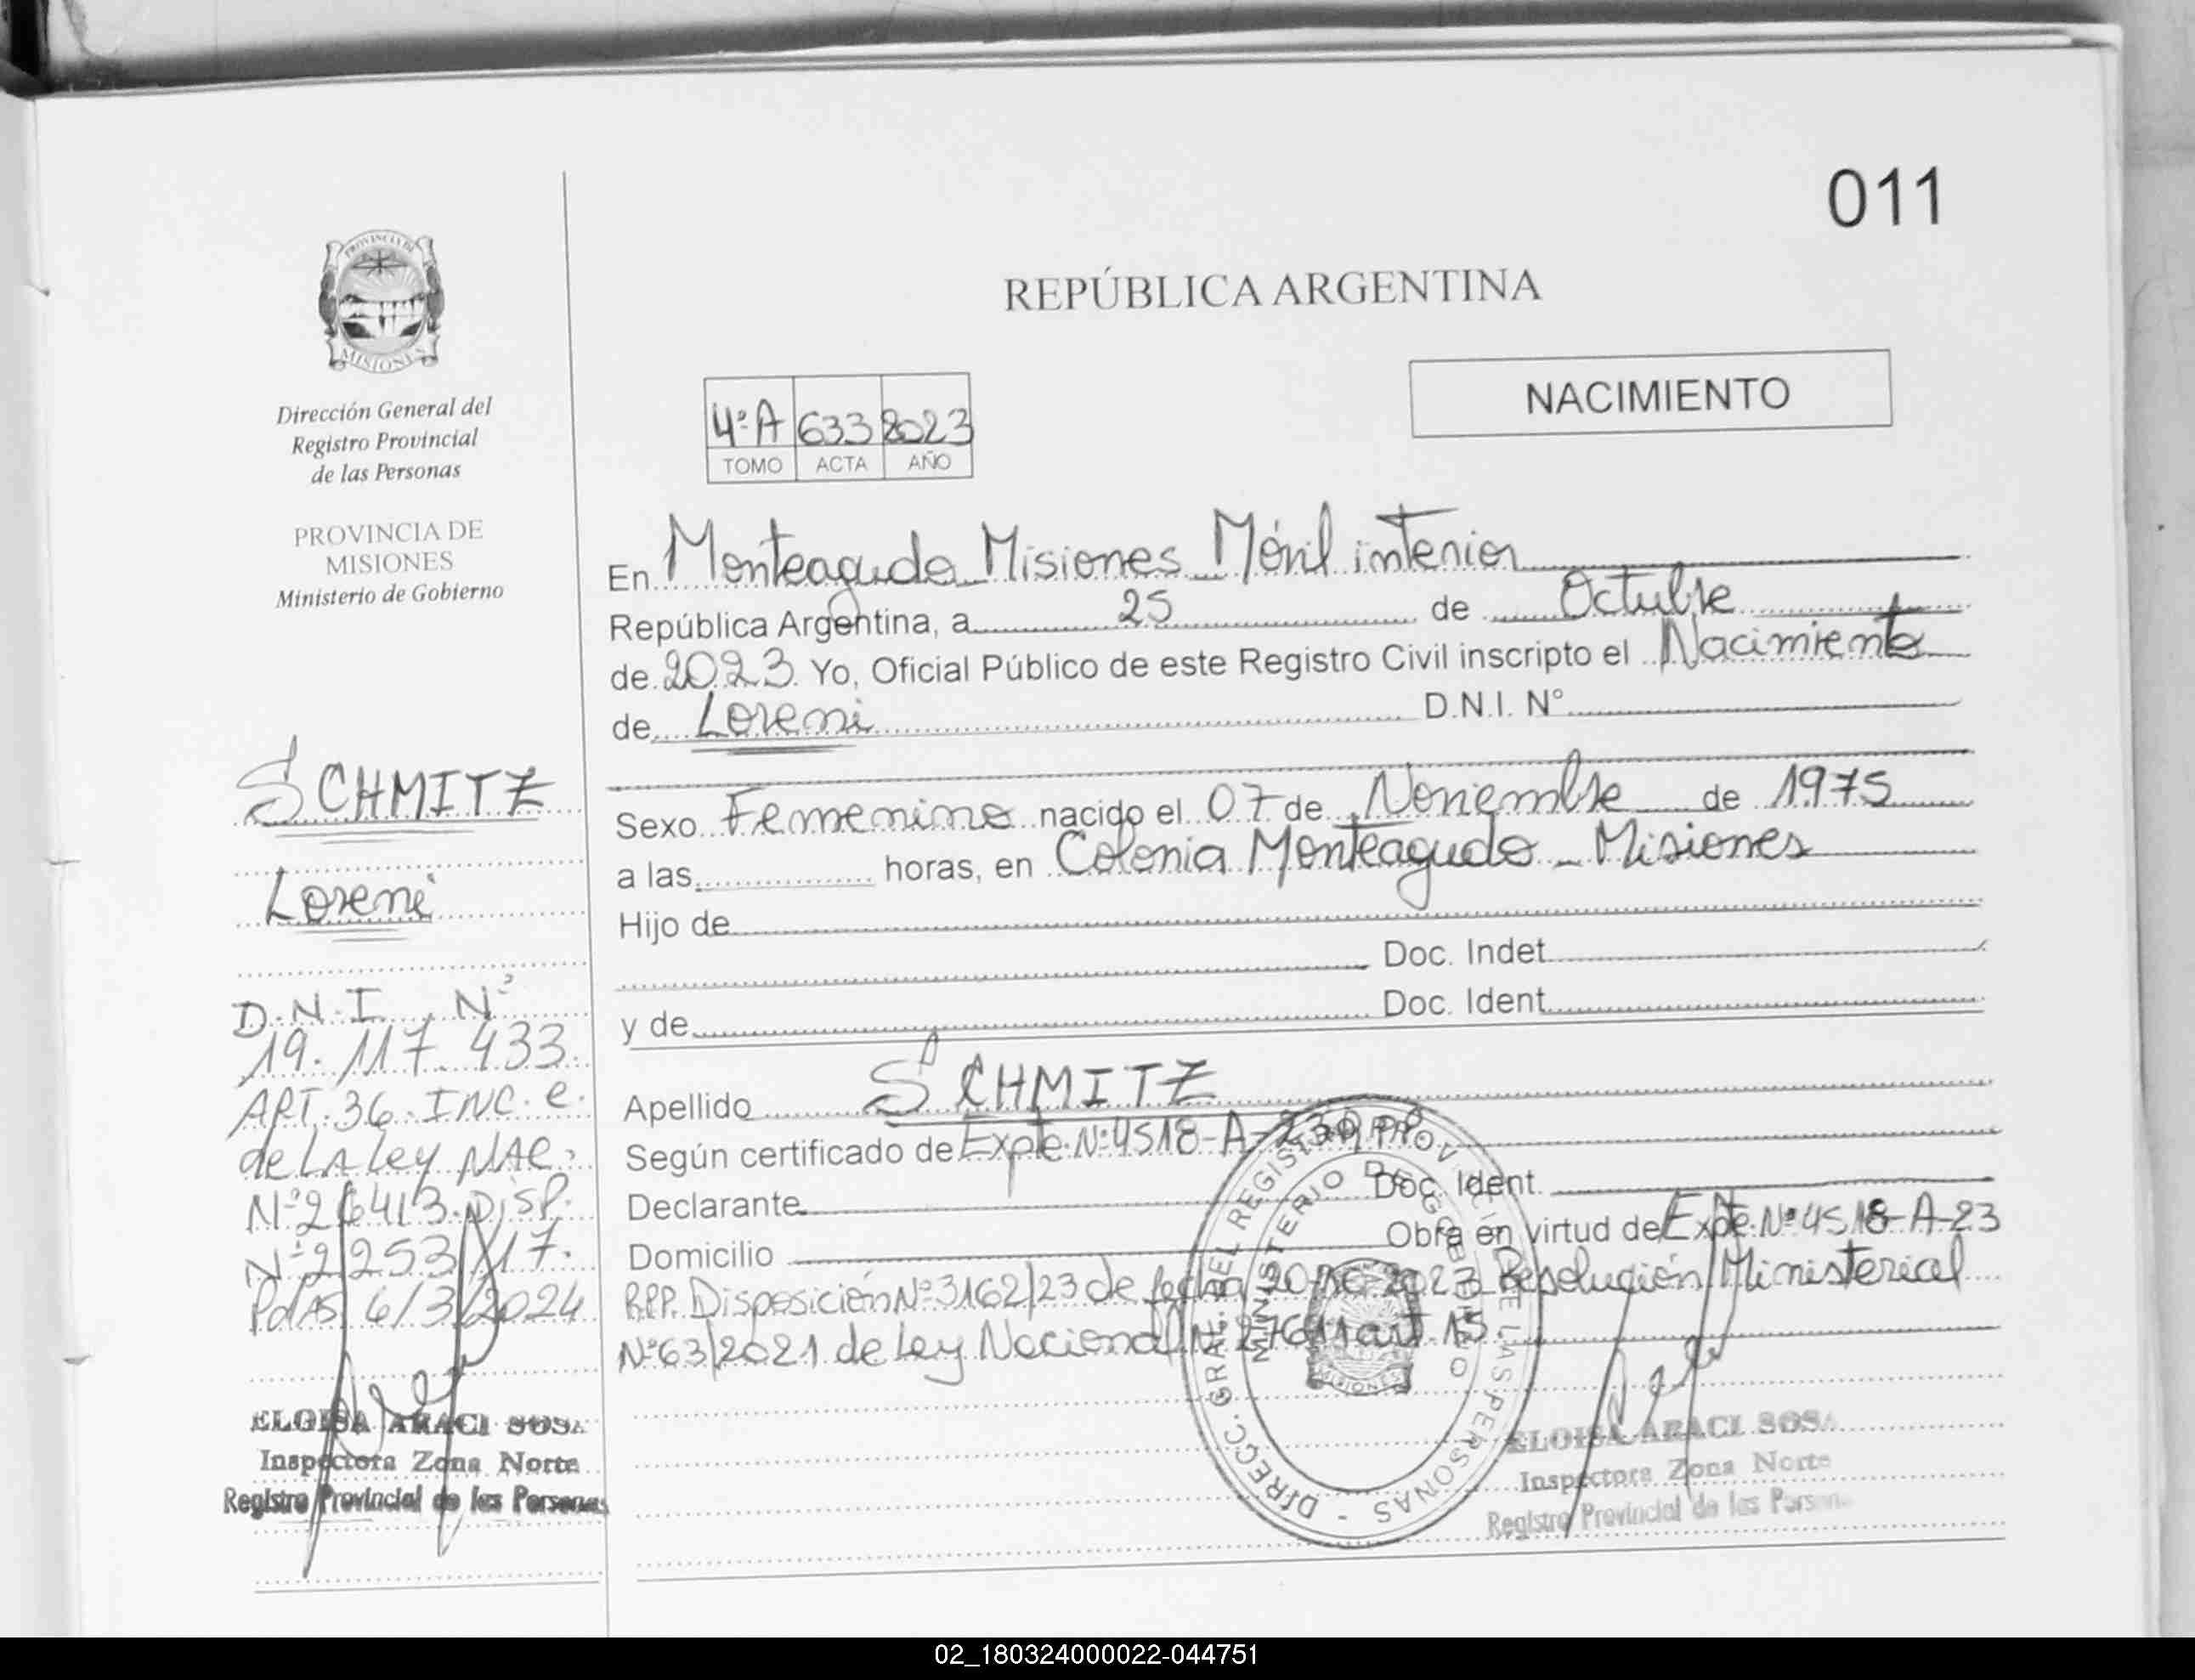 011
PROVINCIA DE
MISIONES
Dirección General del
Registro Provincial
de las Personas
PROVINCIA DE
MISIONES
Ministerio de Gobierno
SCHMITZ
Loreni
D.N.I. Nº
19.117.433.
ART. 36. INC. e.
de LA Ley NAC.
Nº 26413. DISP.
Nº 2253/17.
Pdas 6/3/2024
ELOISA ARACI SOSA
Inspectora Zona Norte
Registro Provincial de las Personas
REPÚBLICA ARGENTINA
NACIMIENTO
4º A 633 2023
TOMO ACTA AÑO
En Monteagudo Misiones Móvil interior
República Argentina, a 25 de Octubre
de 2023. Yo, Oficial Público de este Registro Civil inscripto el Nacimiento
de Loreni D.N.I. N°
Sexo Femenino nacido el 07 de Noviembre de 1975
a las horas, en Colonia Monteagudo - Misiones
Hijo de
Doc. Indet.
y de Doc. Ident.
Apellido SCHMITZ
Según certificado de Expte. Nº 4518-A-23
Declarante Doc. Ident.
Domicilio Obra en virtud de Expte. Nº 4518-A-23
R.P.P. Disposición Nº 3162/23 de fecha 20-10-2023 Resolución Ministerial
Nº 63/2021 de Ley Nacional Nº 27611 art. 15.
DIRECC. GRAL. DEL REGISTRO PROVINCIAL DE LAS PERSONAS -
MINISTERIO DE GOBIERNO
MISIONES
ELOISA ARACI SOSA
Inspectora Zona Norte
Registro Provincial de las Personas
02_180324000022-044751